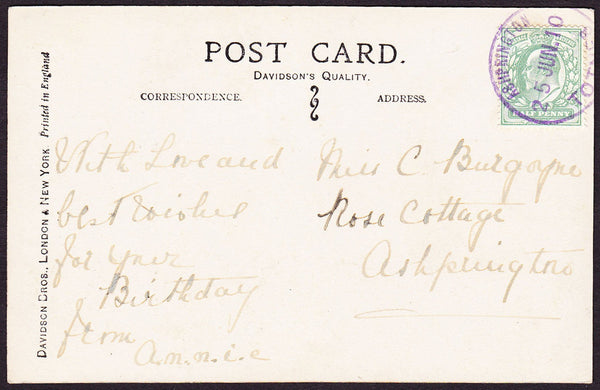 POST CARD.
DAVIDSON'S QUALITY.
CORRESPONDENCE.
ADDRESS.
With Love and
best wishes
for your
Birthday
from
Annie
Miss C. Burgoyne
Rose Cottage
Ashprington
DAVIDSON BROS., LONDON & NEW YORK. Printed in England
ASHPRINGTON
25 JUN. 10
HALF PENNY